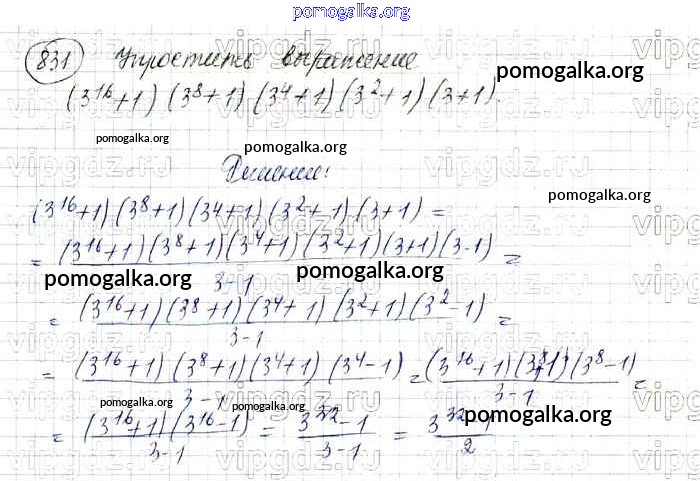 pomogalka.org
831 Упростить выражение
(3¹⁶+1)(3⁸+1)(3⁴+1)(3²+1)(3+1).
pomogalka.org
pomogalka.org
vipgdz.ru
Решение:
pomogalka.org
pomogalka.org
(3¹⁶+1)(3⁸+1)(3⁴+1)(3²+1)(3+1)=
= (3¹⁶+1)(3⁸+1)(3⁴+1)(3²+1)(3+1)(3-1) =
3-1
pomogalka.org pomogalka.org
= (3¹⁶+1)(3⁸+1)(3⁴+1)(3²+1)(3²-1) =
3-1
= (3¹⁶+1)(3⁸+1)(3⁴+1)(3⁴-1) = (3¹⁶+1)(3⁸+1)(3⁸-1) =
3-1 3-1
pomogalka.org pomogalka.org pomogalka.org
= (3¹⁶+1)(3¹⁶-1) = 3³²-1 = 3³²
3-1 3-1 2